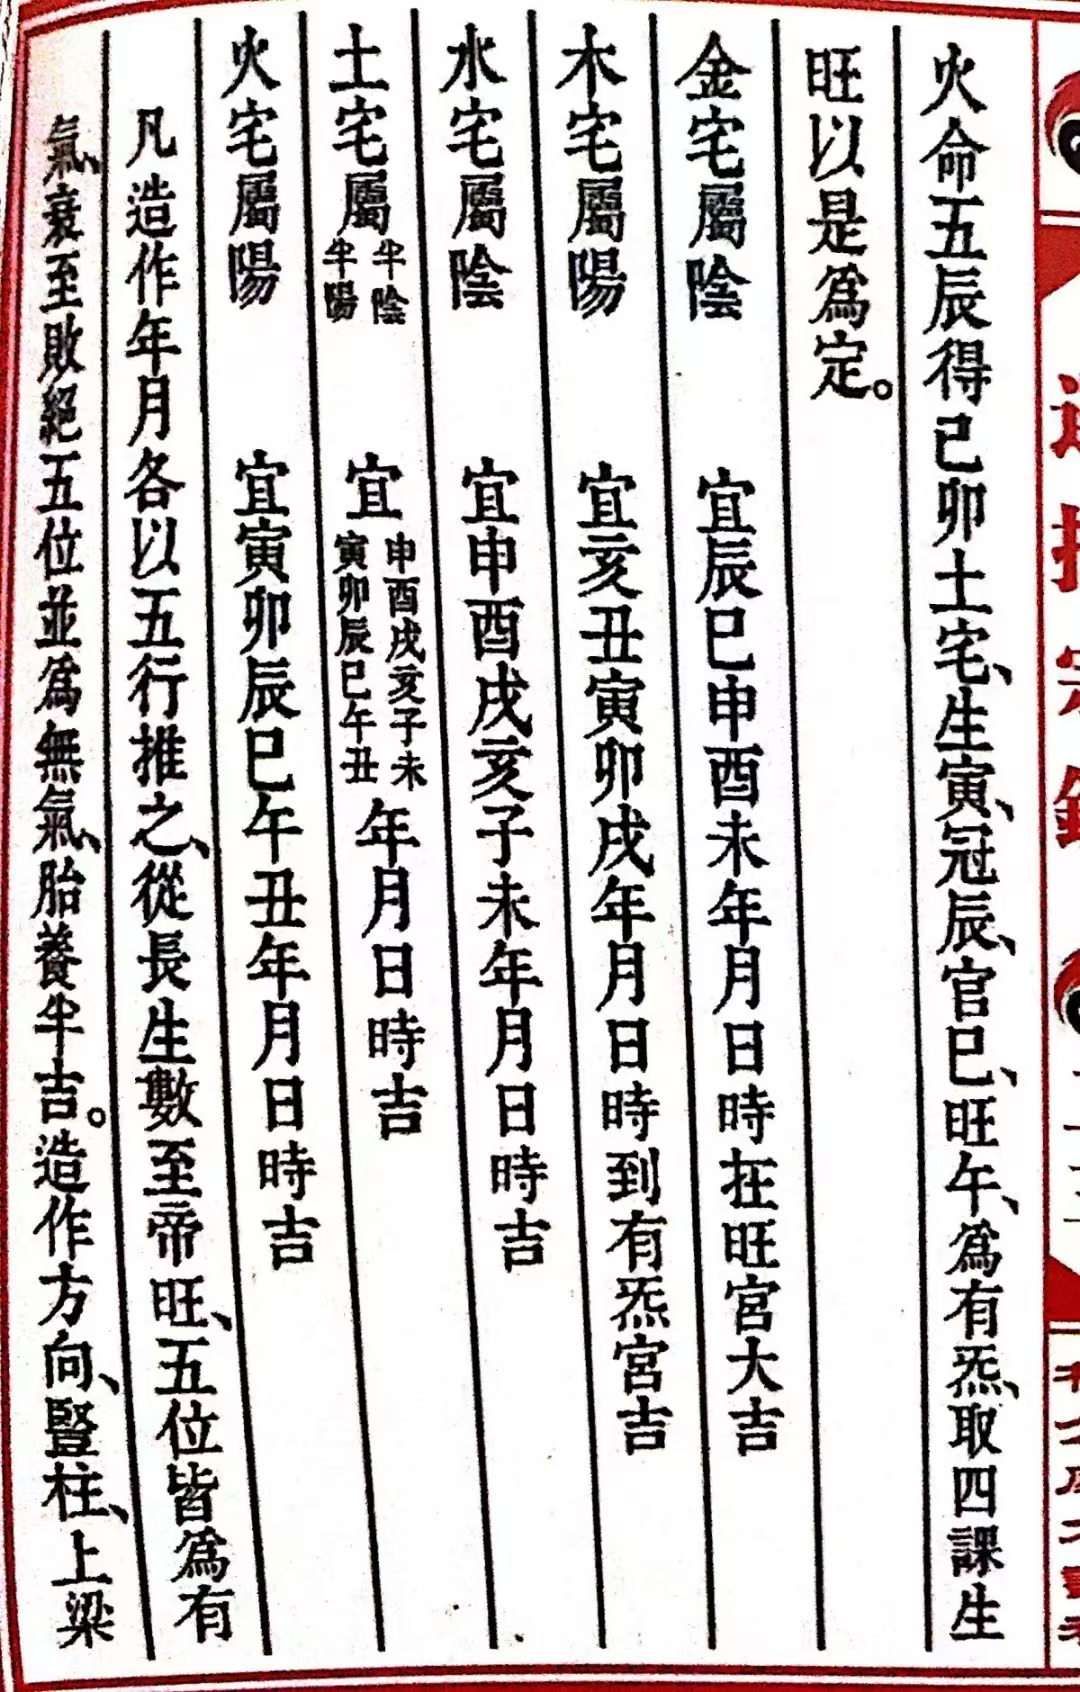 火命五辰得己卯土宅、生寅、冠辰、官巳、旺午、爲有炁、取四課生
旺以是爲定。
金宅屬陰　宜辰巳申酉未年月日時在旺宮大吉
木宅屬陽　宜亥丑寅卯戌年月日時到有炁宮吉
水宅屬陰　宜申酉戌亥子未年月日時吉
土宅屬半陰半陽　宜申酉戌亥子未寅卯辰巳午丑年月日時吉
火宅屬陽　宜寅卯辰巳午丑年月日時吉
凡造作年月各以五行推之、從長生數至帝旺、五位皆爲有
氣、衰至敗絕五位並爲無氣、胎養半吉。造作方向、豎柱、上梁